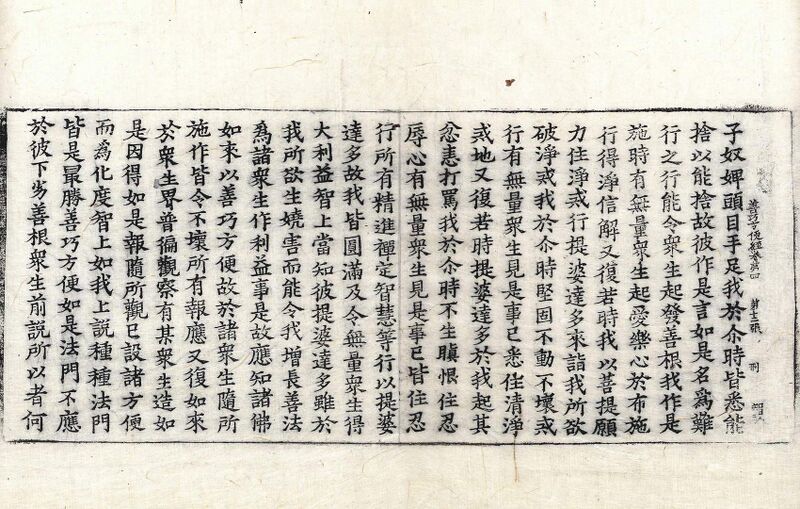 善巧方便經卷第四 第十五張 刑
子奴婢頭目手足我於尒時皆悉能
捨以能捨故彼作是言如是名爲難
行之行能令衆生起發善根我作是
施時有無量衆生起愛樂心於布施
行得淨信解又復若時我以菩提願
力住淨戒行提婆達多來詣我所欲
破淨戒我於尒時堅固不動不壞戒
行有無量衆生見是事已悉住清淨
戒地又復若時提婆達多於我起其
忿恚打罵我於尒時不生瞋恨住忍
辱心有無量衆生見是事已皆住忍
行所有精進禪定智慧等行以提婆
達多故我皆圓滿及令無量衆生得
大利益智上當知彼提婆達多雖於
我所欲生嬈害而能令我增長善法
爲諸衆生作利益事是故應知諸佛
如來以善巧方便故於諸衆生隨所
施作皆令不壞所有報應又復如來
於衆生界普徧觀察有某衆生造如
是因得如是報隨所觀已設諸方便
而爲化度智上如我上說種種法門
皆是最勝善巧方便如是法門不應
於彼下劣善根衆生前說所以者何